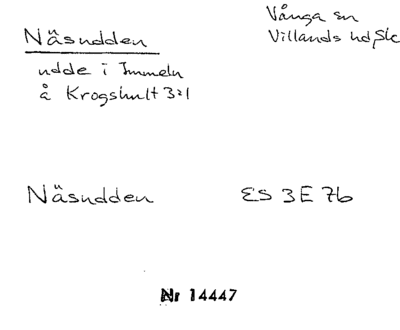 Näsudden
Vånga sn
Villands hd, Sk
udde i Immeln
å Krogshult 3:1
Näsudden
ES 3E 7b
Nr 14447